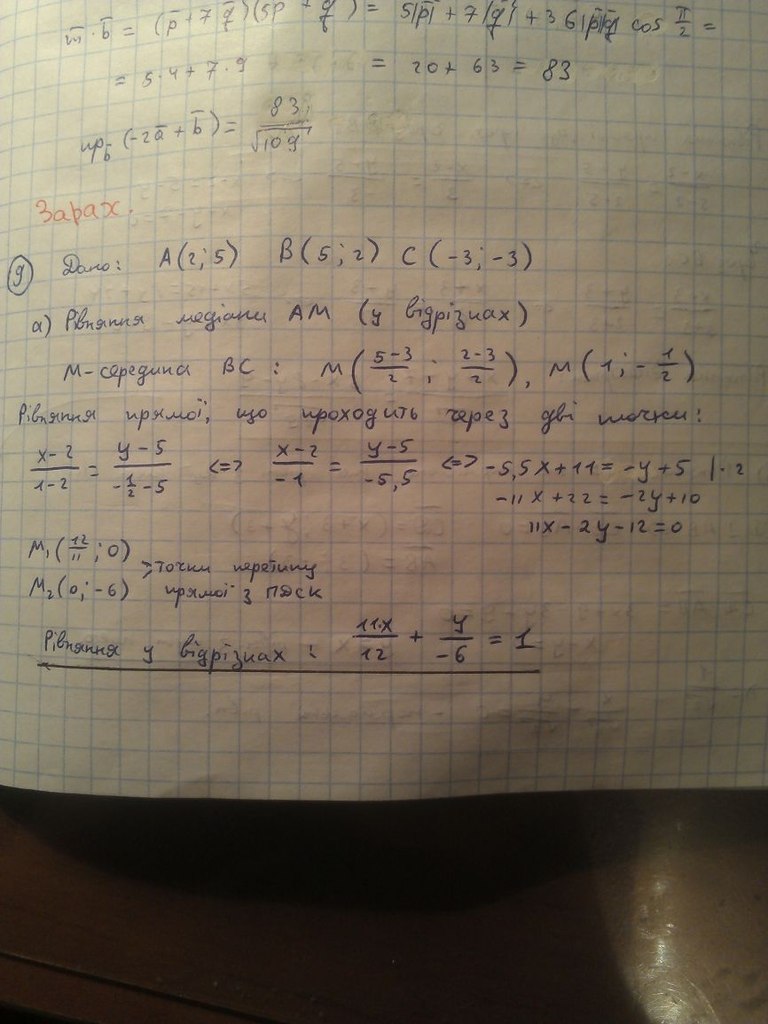 m̄ · b̄ = (p̄ + 7q̄)(5p̄ + q̄) = 5|p̄| + 7|q̄| + 36|p̄||q̄| cos π/2 =
= 5·4 + 7·9 = 20 + 63 = 83
пр_b̄ (-2ā + b̄) = 83/√109
Зарах.
9 Дано: A(2; 5) B(5; 2) C(-3; -3)
а) Рівняння медіани AM (у відрізнах)
M-середина BC: M((5-3)/2; (2-3)/2), M(1; -1/2)
Рівняння прямої, що проходить через дві точки:
(x-2)/(1-2) = (y-5)/(-1/2-5) <=> (x-2)/(-1) = (y-5)/(-5,5) <=> -5,5x+11 = -y+5 |·2
-11x+22 = -2y+10
11x-2y-12=0
M₁(12/11; 0)
M₂(0; -6) => точки перетину
прямої з ПДСК
Рівняння у відрізнах: 11x/12 + y/-6 = 1